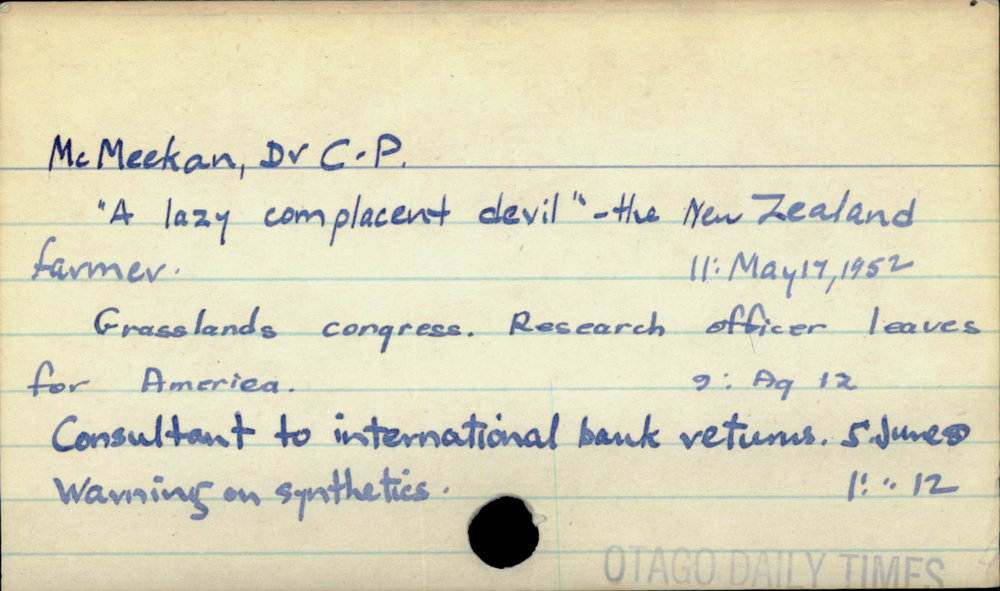 McMeekan, Dr C.P.
"A lazy complacent devil" - the New Zealand
farmer. 11: May 17, 1952
Grasslands congress. Research officer leaves
for America. 9: Ag 12
Consultant to international bank returns. 5. June
Warning on synthetics. 1: " 12
OTAGO DAILY TIMES